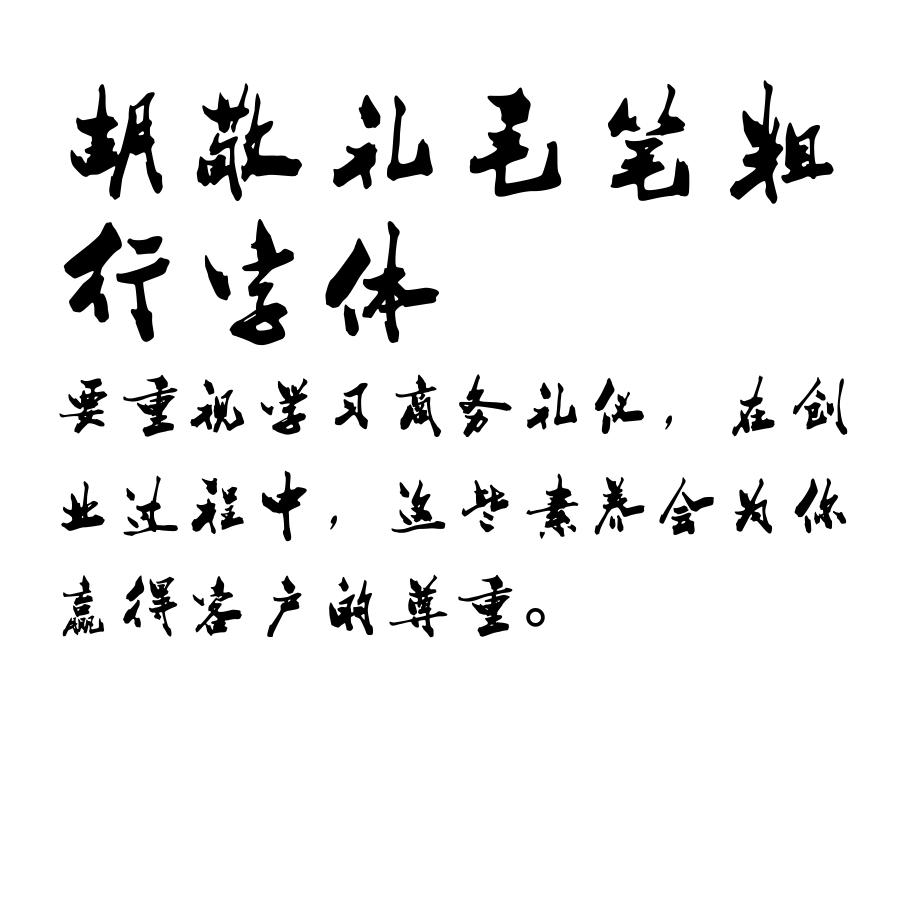 胡敬礼毛笔粗
行字体
要重视学习商务礼仪，在创
业过程中，这些素养会为你
赢得客户的尊重。